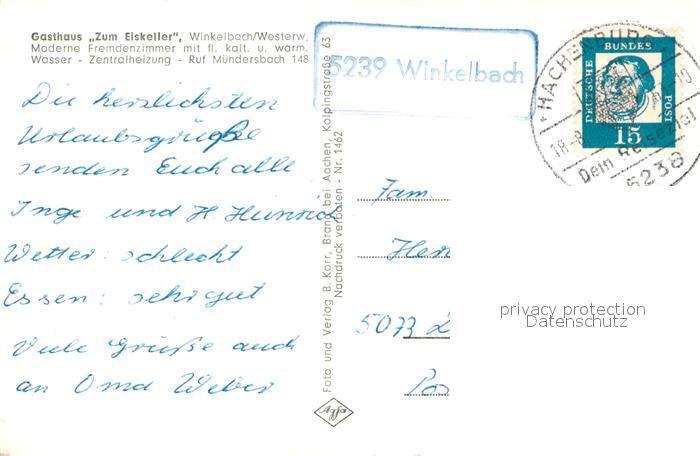 Gasthaus „Zum Eiskeller", Winkelbach/Westerw.
Moderne Fremdenzimmer mit fl. kalt. u. warm.
Wasser - Zentralheizung - Ruf Mündersbach 148
5239 Winkelbach
HACHENBURG
18.-8.
-10
Dein Reiseziel
5238
DEUTSCHE
BUNDES
POST
15
Die herzlichsten
Urlaubsgrüße
senden Euch alle
Inge und H. Heinrich
Wetter: schlecht
Essen: sehr gut
Viele Grüße auch
an Oma Weber
Foto und Verlag B. Korr, Brand bei Aachen, Kolpingstraße 63
Nachdruck verboten - Nr. 1462
Agfa
Fam
5073
privacy protection
Datenschutz